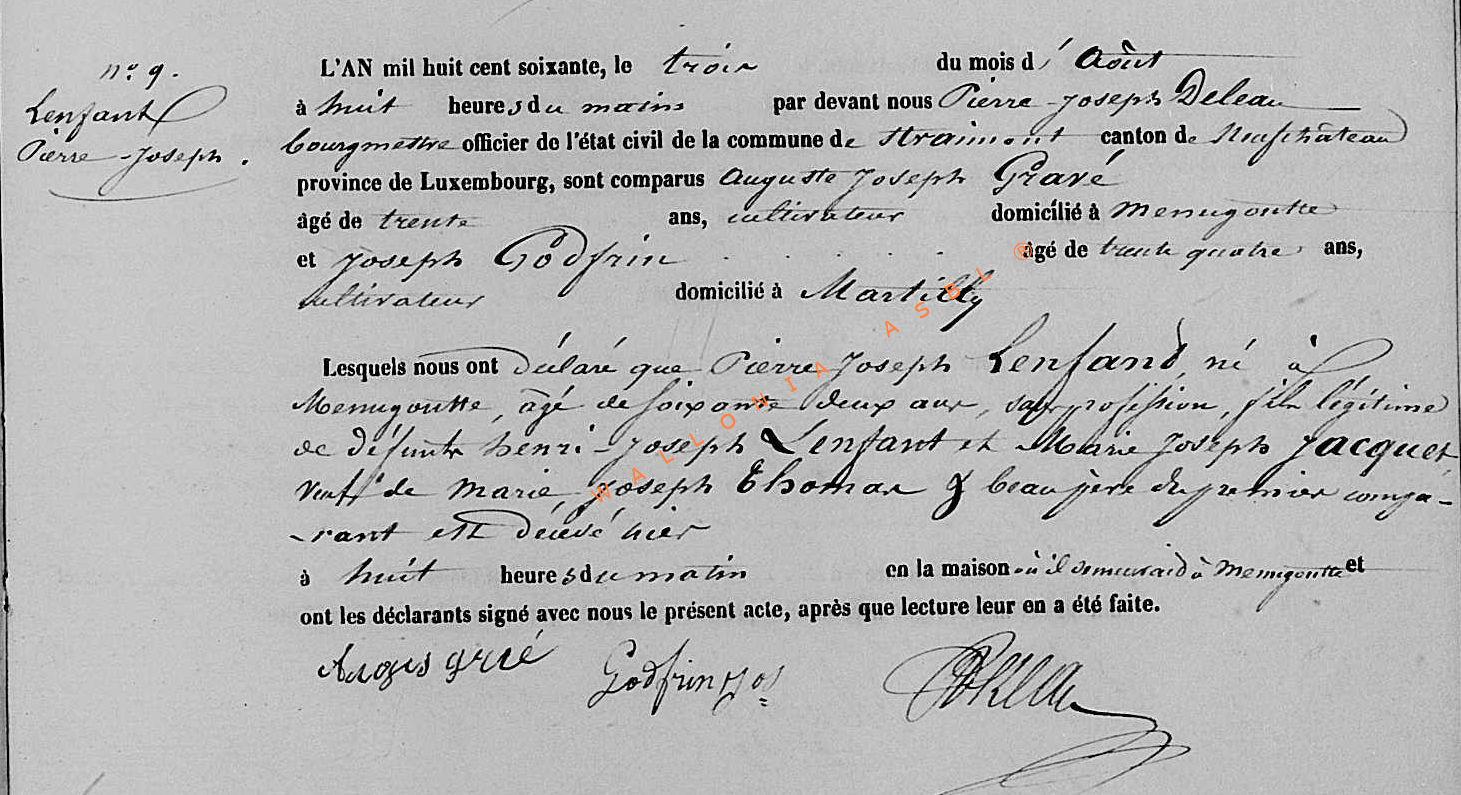 n° 9.
Lenfant
Pierre-Joseph.
L'AN mil huit cent soixante, le trois du mois d' Août
à huit heures du matin par devant nous Pierre-Joseph Deleau
bourgmettre officier de l'état civil de la commune de Straimont canton de Neufchâteau
province de Luxembourg, sont comparus Auguste Joseph Gravé
âgé de trente ans, cultivateur domicilié à Menugoutte
et Joseph Godfrin . . . . . âgé de trente quatre ans,
cultivateur domicilié à Martilly
Lesquels nous ont déclaré que Pierre Joseph Lenfand, né à
Menugoutte, âgé de soixante deux ans, sans profession, fils légitime
de défunts henri-Joseph Lenfant et Marie Joseph Jacquet,
veuf de Marie Joseph Thomas & beau père du premier compa-
-rant est décédé hier
à huit heures du matin en la maison où il demeuraid à Menugoutte et
ont les déclarants signé avec nous le présent acte, après que lecture leur en a été faite.
Godfrin Jos
WALLONIA ASBL ®